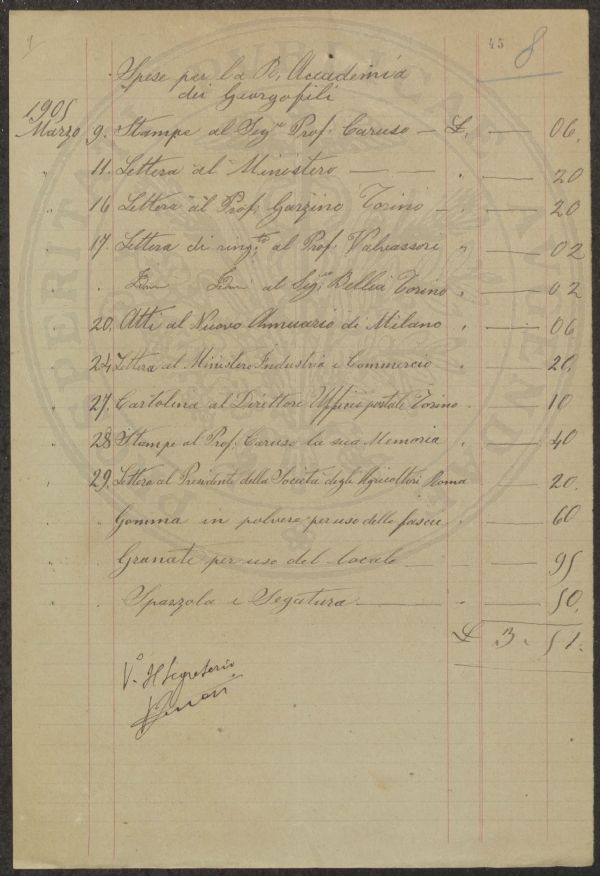 9
45
8
Spese per la R. Accademia
dei Georgofili
1905
Marzo 9. Stampe al Sigre Prof. Caruso — £. — 06.
" 11. Lettera al Ministero — " — 20
" 16 Lettera al Prof. Garzino Torino — " — 20
" 17. Lettera di ringto al Prof. Valvassori " — 02
" " al Sigre Bellia Torino " — 02
" 20. Atti al Nuovo Annuario di Milano " — 06.
" 24. Lettera al Ministero Industria e Commercio " — 20.
" 27. Cartolina al Direttore Uffizio postale Torino " — 10
" 28 Stampe al Prof. Caruso la sua Memoria " — 40
" 29. Lettera al Presidente della Società degli Agricoltori Roma — 20.
" Gomma in polvere per uso delle fascie " — 60
" Granate per uso del locale — — 95
" Spazzola e Segatura — " — 50.
£ 3. 51.
V.° Il Segretario